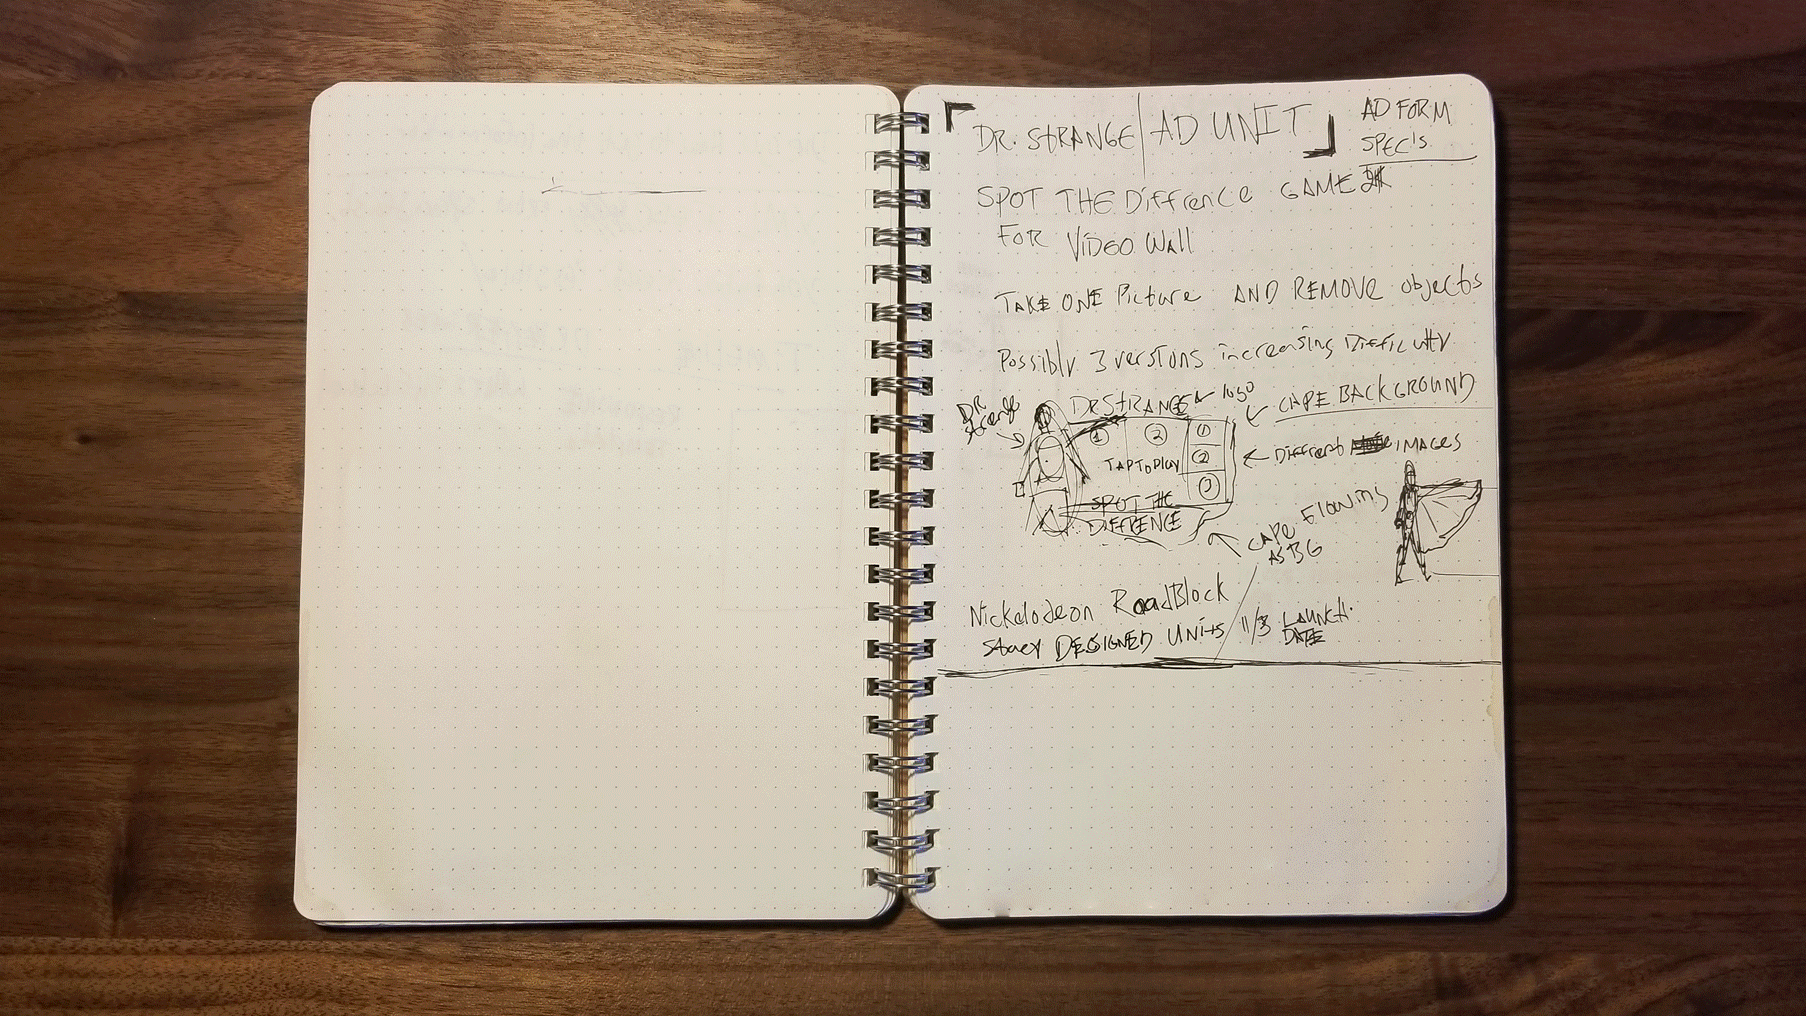 DR. STRANGE | AD UNIT
AD FORM
SPEC'S
SPOT THE DiffrencE GAME
FOR VIDEO WAll
TAKE ONE Picture AND REMOVE objects
Possibly 3 versions increasing Difficulty
DR
Strange
DRSTRANGE
logo
CAPE BACKGROUND
1
2
1
TAP TO PlAY
2
3
Diffrent IMAGES
SPOT THE
DIFFRENCE
CAPE Flowing
AS BG
Nickelodeon RoadBlock
DESIGNED Units
11/3 LAUNCH
DATE